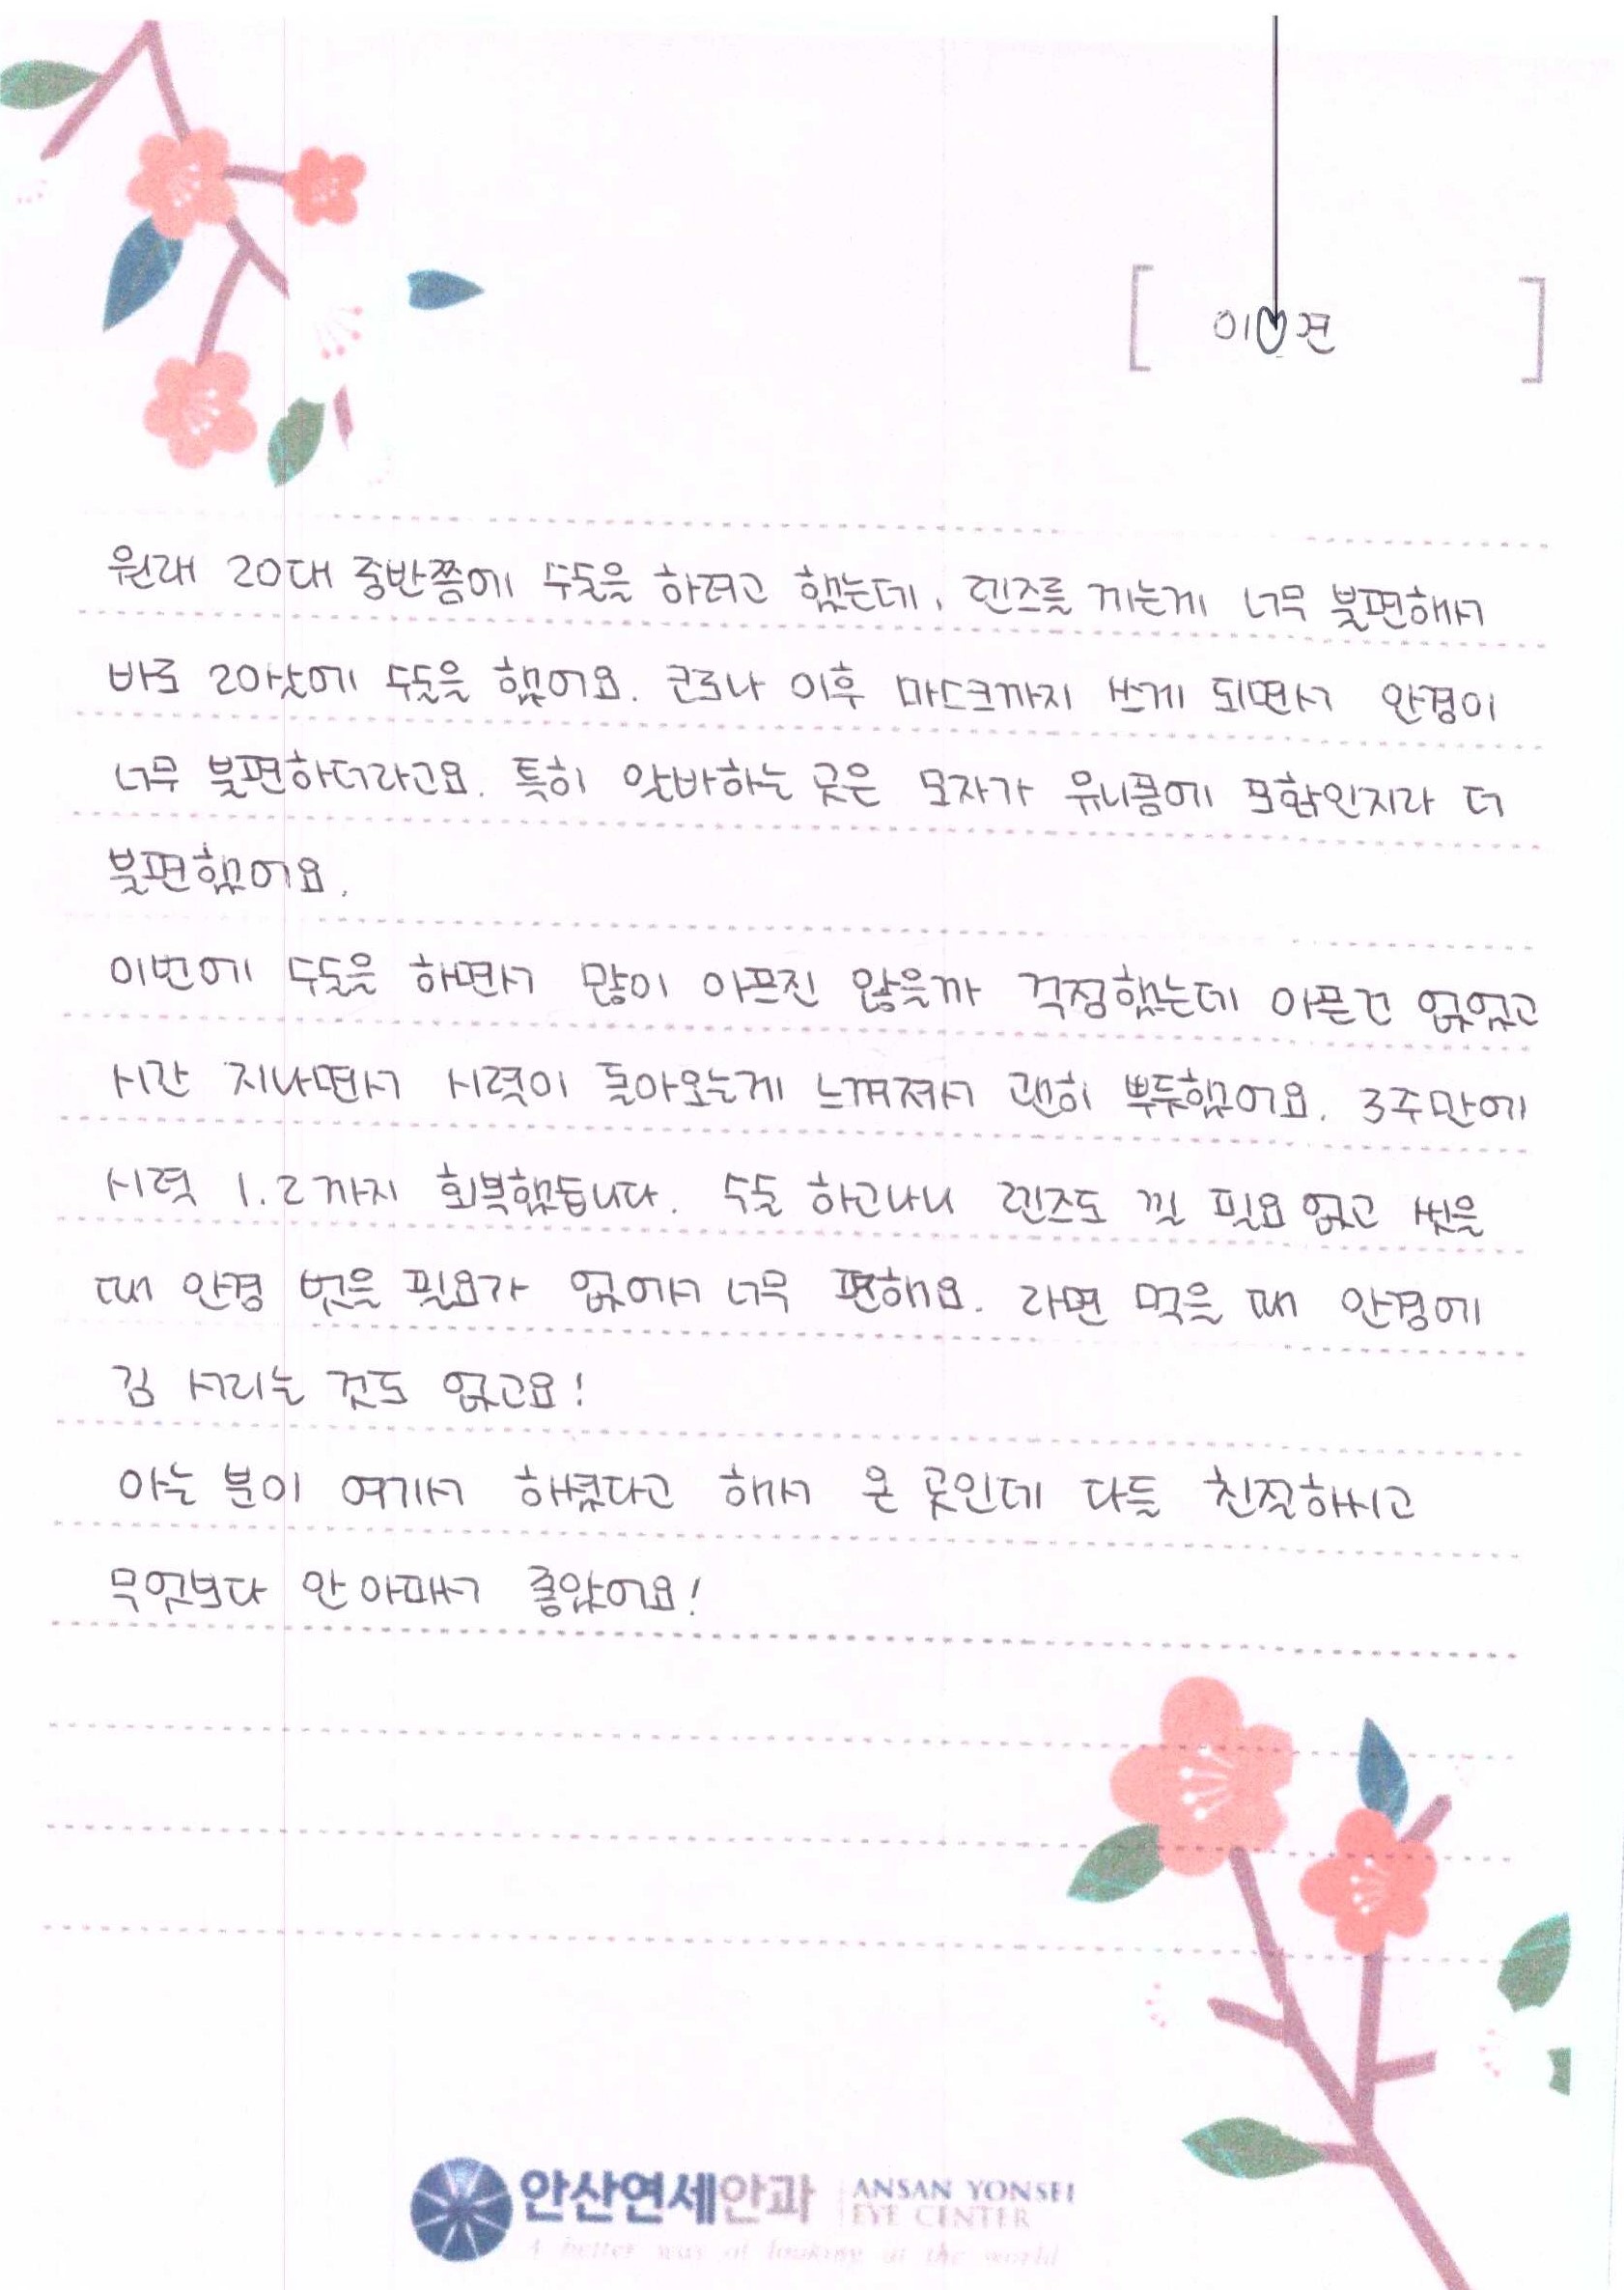 [ 이♡전 ]
원래 20대 중반쯤에 수술을 하려고 했는데, 렌즈를 끼는게 너무 불편해서
바로 20살에 수술을 했어요. 코로나 이후 마스크까지 쓰게 되면서 안경이
너무 불편하더라고요. 특히 알바하는 곳은 모자가 유니폼에 포함인지라 더
불편했어요.
이번에 수술을 하면서 많이 아프진 않을까 걱정했는데 아픈건 없었고
시간 지나면서 시력이 돌아오는게 느껴져서 괜히 뿌듯했어요. 3주만에
시력 1.2까지 회복했습니다. 수술 하고나니 렌즈도 낄 필요 없고 씻을
때 안경 벗을 필요가 없어서 너무 편해요. 라면 먹을 때 안경에
김 서리는 것도 없고요!
아는 분이 여기서 하셨다고 해서 온 곳인데 다들 친절하시고
무엇보다 안 아파서 좋았어요!
안산연세안과 ANSAN YONSEI
EYE CENTER
A better way of looking at the world